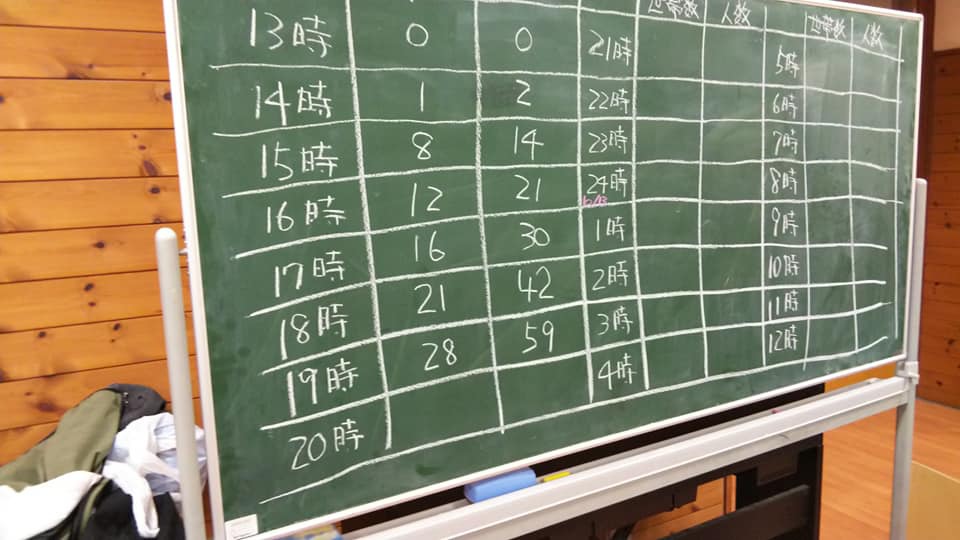 世帯数 人数 世帯数 人数
13時 0 0 21時 5時
14時 1 2 22時 6時
15時 8 14 23時 7時
16時 12 21 24時 8時
10/13
17時 16 30 1時 9時
18時 21 42 2時 10時
19時 28 59 3時 11時
20時 4時 12時